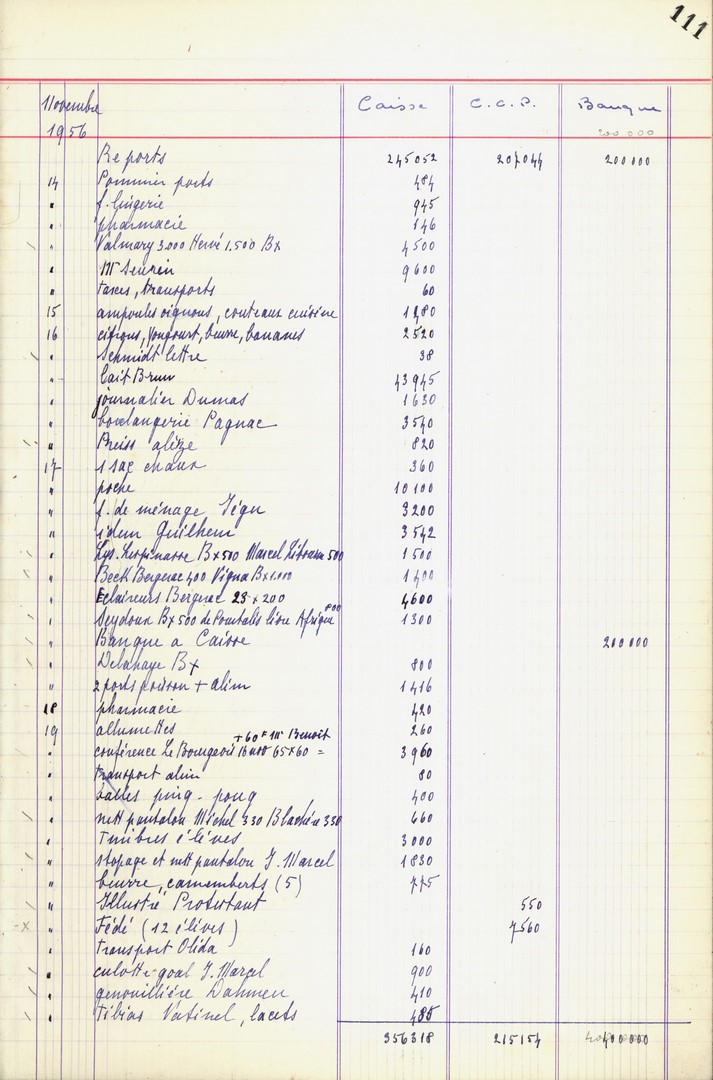 111
Novembre Caisse C.C.P. Banque
1956 200 000
Reports 245052 207044 200000
14 Pommier ports 484
" f. lingerie 945
" pharmacie 146
" Valmary 3.000 Hervé 1.500 Bx 4500
" Mr Seurin 9600
" taxes, transports 60
15 ampoules oignons, couteaux cuisine 1280
16 citrons, Yougourt, beurre, bananes 2520
" Schmidt lettre 38
" Lait Brun 43945
" journalier Dumas 1630
" boulangerie Pagnac 3540
" Preiss alèze 820
17 1 sac chaux 360
" poche 10100
" f. de ménage Tégu 3200
" idem Guilhem 3542
" Bx 500 Marcel 500 1500
" Beck Bergerac 400 Vigna Bx 1.000 1400
" Eclaireurs Bergerac 23 x 200 4600
" Seydoux Bx 500 de Pourtalès livre Afrique 800 1300
" Banque a Caisse 200000
" Delahaye Bx 800
" 2 ports poisson + alim 1416
18 pharmacie 420
19 allumettes 260
+ 60 F Mr Benoît
" conférence Le Bourgeois 65x60 = 3960
" transport alim 80
" balles ping-pong 400
" nett pantalon Michel 330 Blachère 330 660
" Timbres élèves 3000
" stopage et nett pantalon J. Marcel 1830
" beurre, camemberts (5) 775
" Illustré Protestant 550
-x " Fédé (12 élèves) 7560
" Transport Olida 160
" culotte goal J. Marcel 900
" genouillière Dahmen 410
" Tibias Vatinel, lacets 485
356318 215154 400000